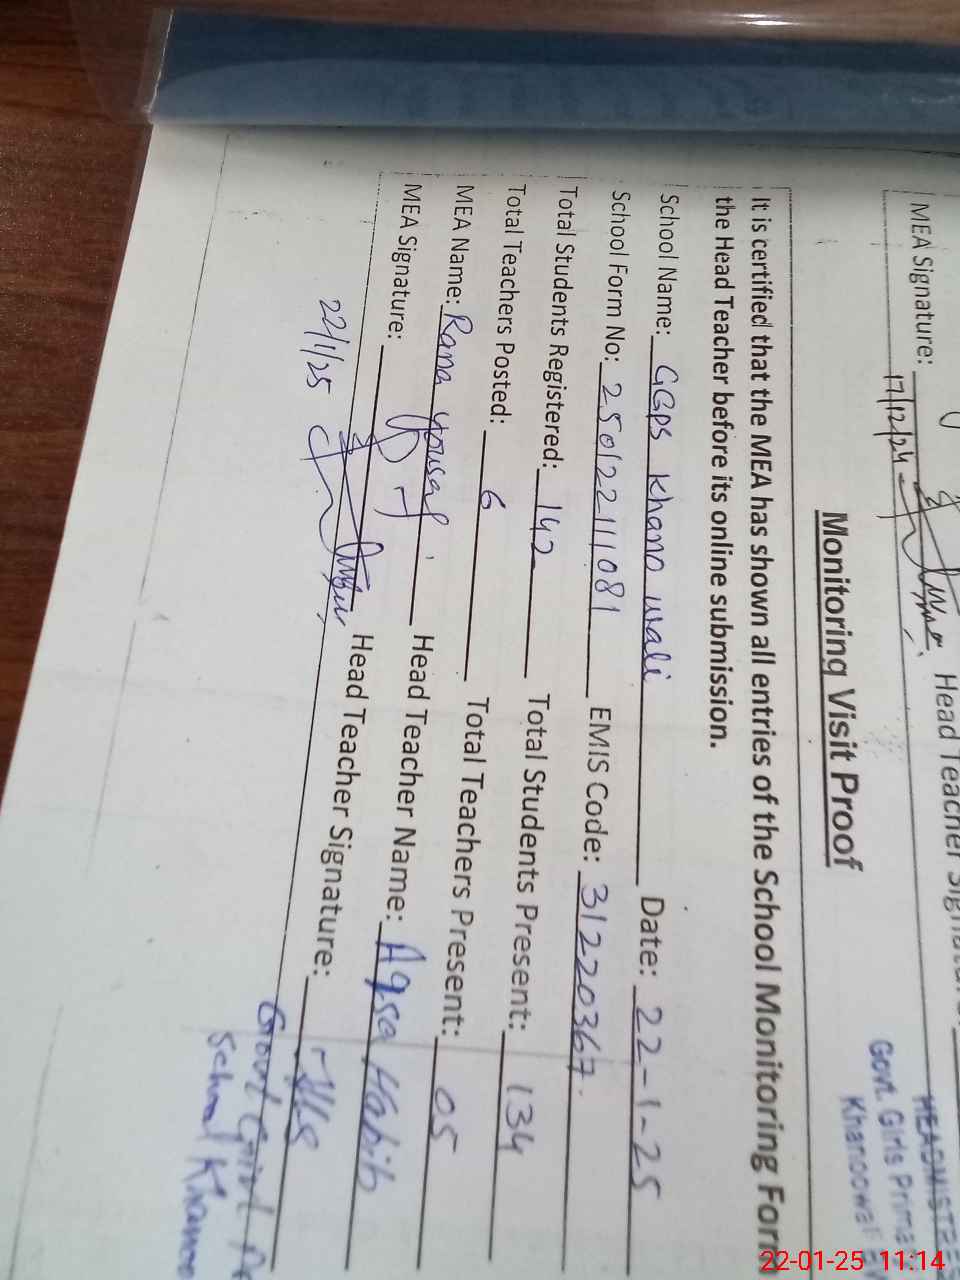 MEA Signature: Head Teacher Signature:
17/12/24
HEADMISTRE
Govt. Girls Prima
Khanoowal
Monitoring Visit Proof
It is certified that the MEA has shown all entries of the School Monitoring Form
the Head Teacher before its online submission.
School Name: GGPS Khano wali Date: 22-1-25
School Form No: 25012211081 EMIS Code: 31220367
Total Students Registered: 142 Total Students Present: 134
Total Teachers Posted: 6 Total Teachers Present: 05
MEA Name: Rana Yousaf Head Teacher Name: Aqsa Habib
MEA Signature: Head Teacher Signature:
22/1/25
School
22-01-25 11:14